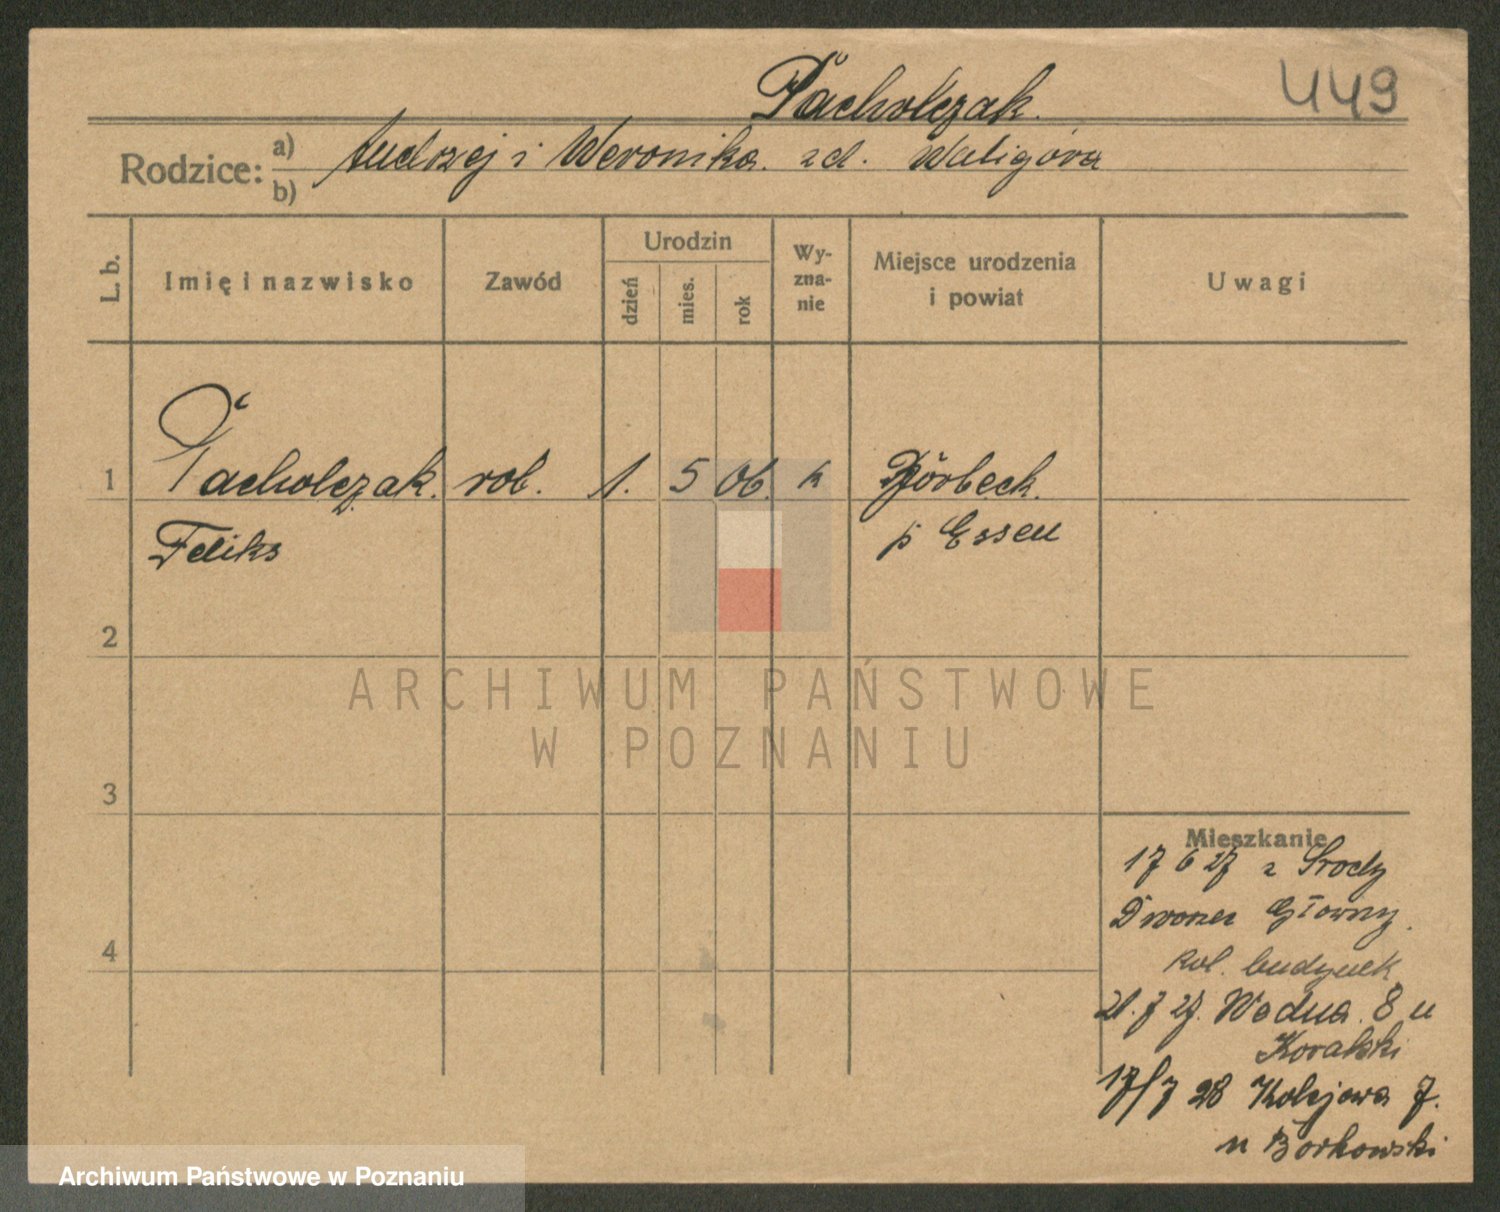 Pacholczak.
449
Rodzice: a) Andrzej i Weronika. zd. Waligóra
b)
L. b.
Imię i nazwisko
Zawód
Urodzin
dzień
mies.
rok
Wy-
zna-
nie
Miejsce urodzenia
i powiat
Uwagi
1 Pacholczak. rob. 1. 5 06. k Börbeck.
Feliks p Essen
2
ARCHIWUM PAŃSTWOWE
W POZNANIU
3
Mieszkanie
17 6 27 z Środy
Dworzec Głowny.
kol. budynek
21. 7 27. Wodna. 8 u
Koralski
4
17/7 28 Kolejowa 7.
u Borkowski
Archiwum Państwowe w Poznaniu